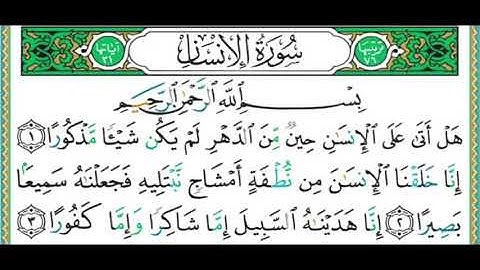 ترتيبها ٧٦ سُورَةُ الإِنسَانِ آياتها ٣١
بِسْمِ ٱللَّهِ ٱلرَّحْمَٰنِ ٱلرَّحِيمِ
هَلْ أَتَىٰ عَلَى ٱلْإِنسَٰنِ حِينٌ مِّنَ ٱلدَّهْرِ لَمْ يَكُن شَيْـًٔا مَّذْكُورًا ١
إِنَّا خَلَقْنَا ٱلْإِنسَٰنَ مِن نُّطْفَةٍ أَمْشَاجٍ نَّبْتَلِيهِ فَجَعَلْنَٰهُ سَمِيعًۢا
بَصِيرًا ٢ إِنَّا هَدَيْنَٰهُ ٱلسَّبِيلَ إِمَّا شَاكِرًا وَإِمَّا كَفُورًا ٣